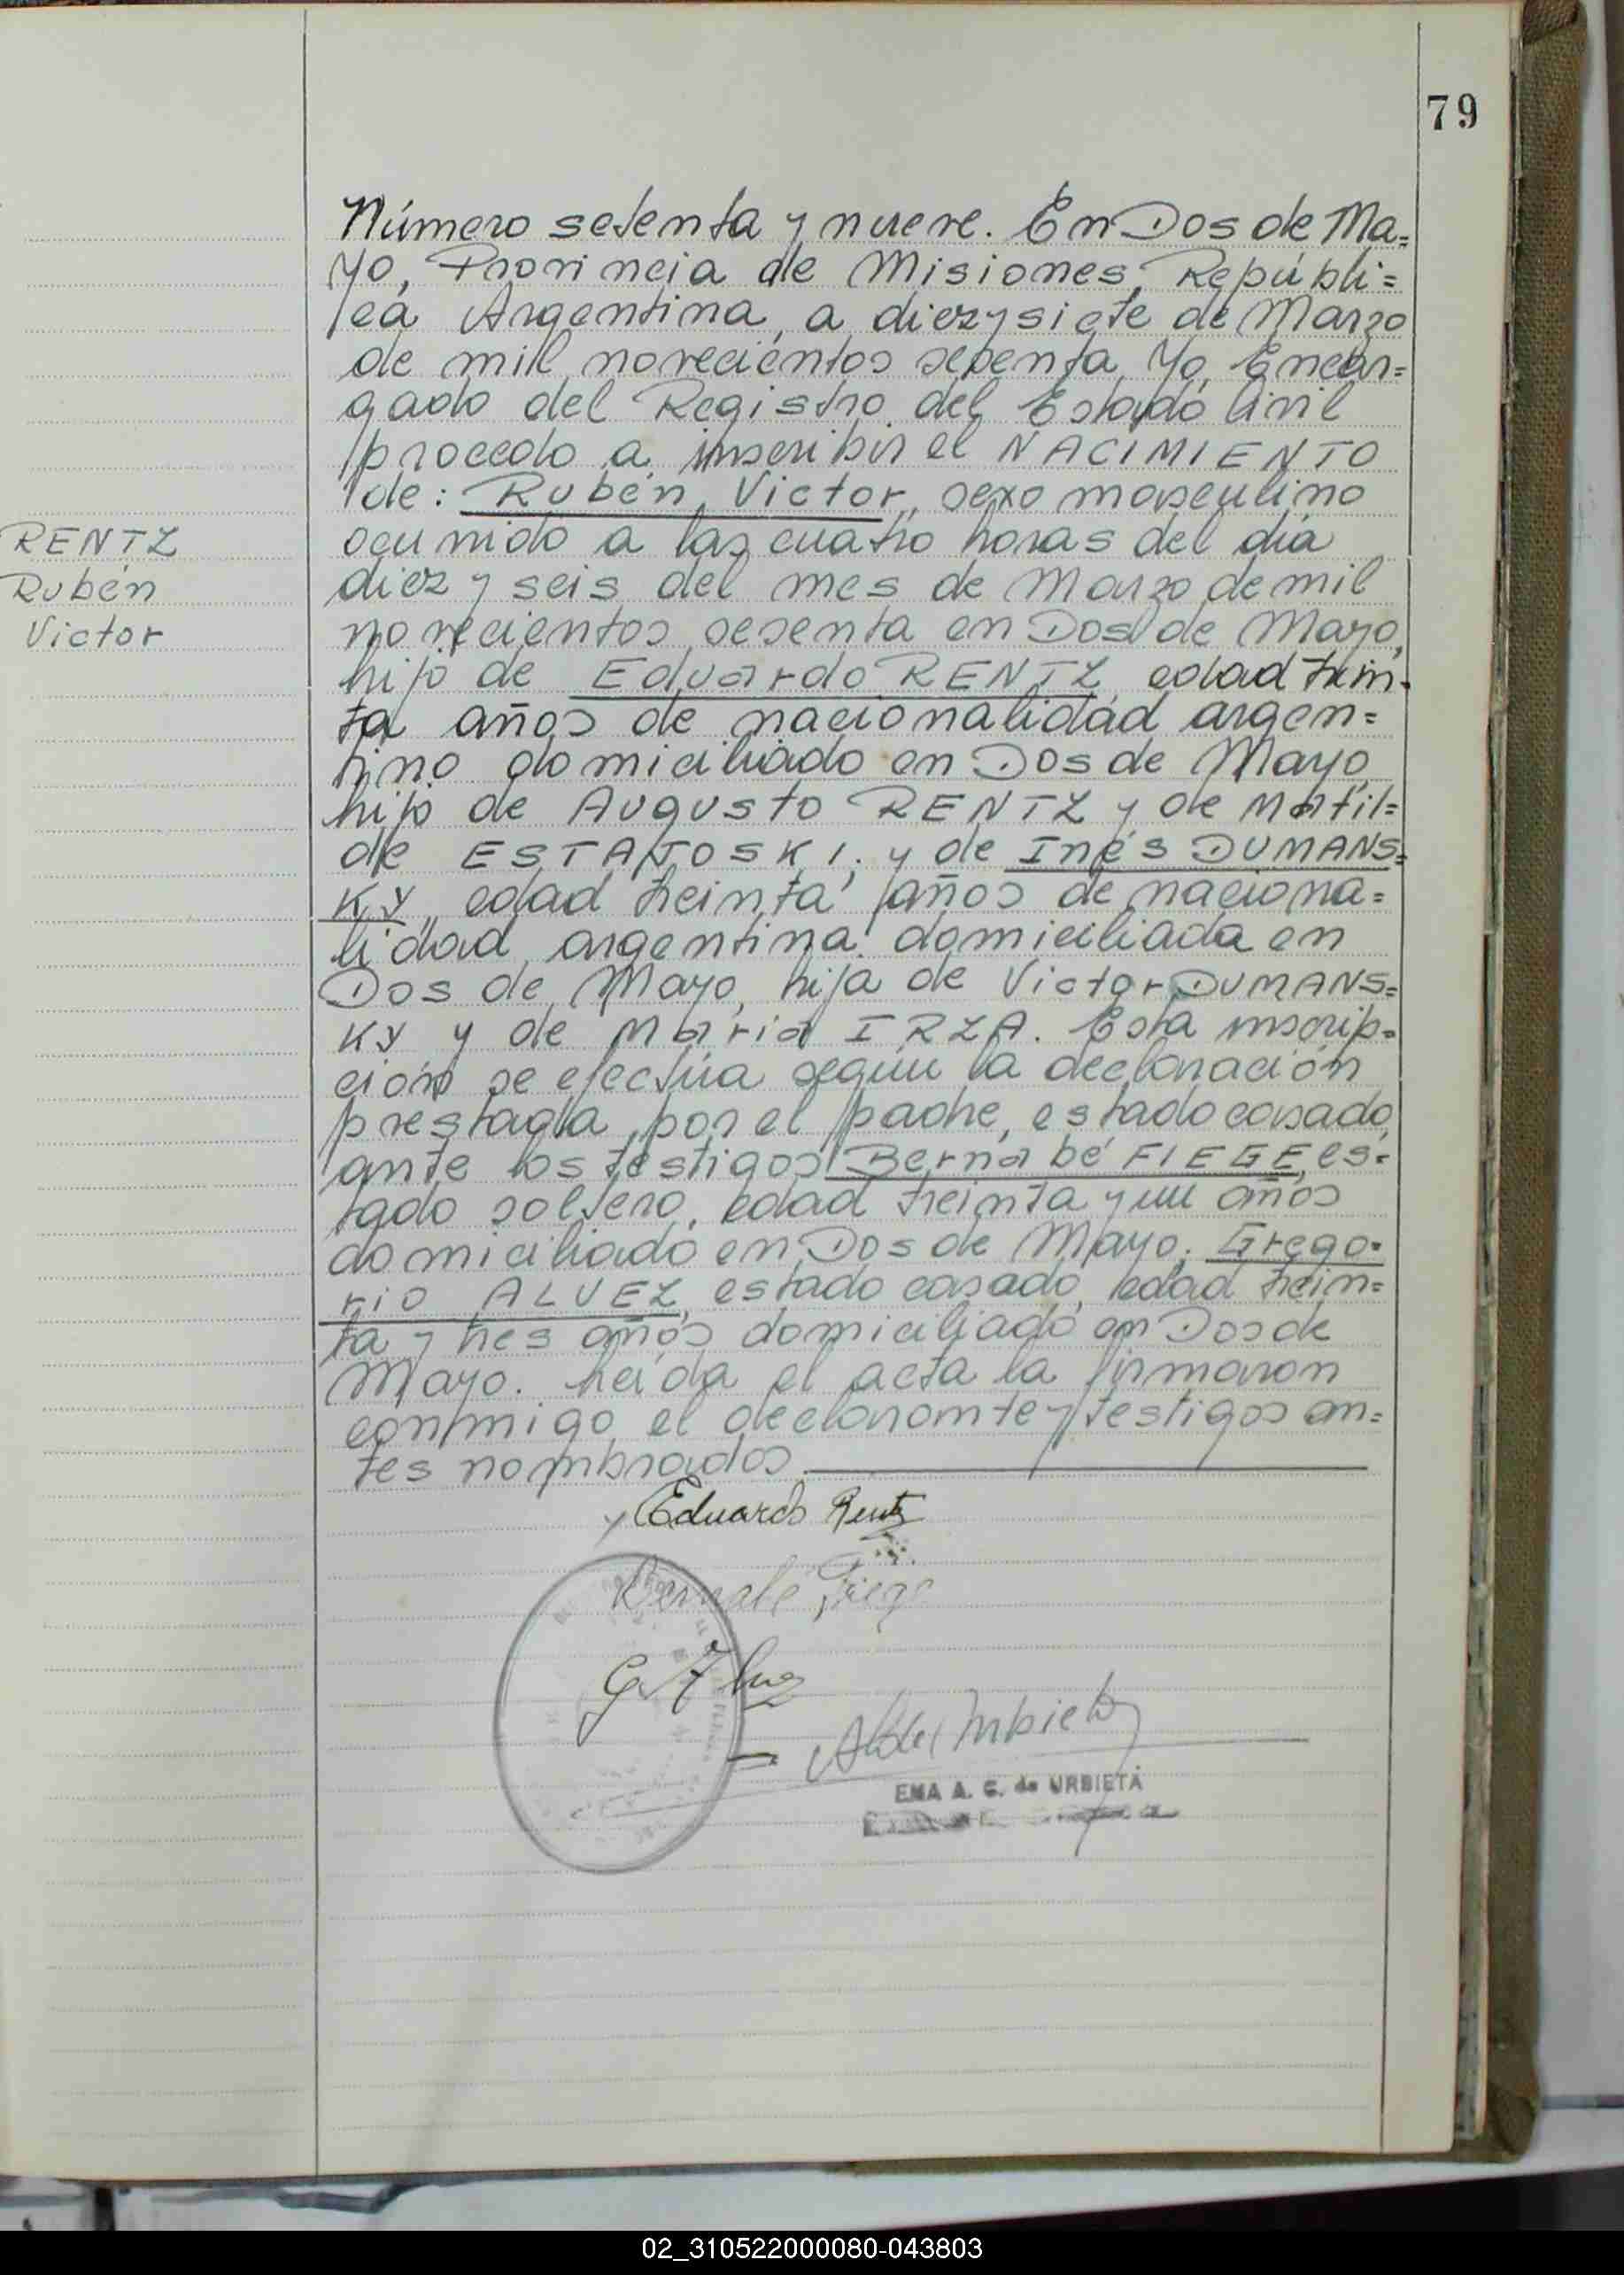 79
Número setenta y nueve. En Dos de Ma=
yo, Provincia de Misiones, Repúbli=
ca Argentina, a diez y siete de Marzo
de mil novecientos sesenta, Yo, Encar=
gado del Registro del Estado Civil
procedo a inscribir el NACIMIENTO
de: Rubén Victor, sexo masculino
RENTZ
Rubén
Victor
ocurrido a las cuatro horas del día
diez y seis del mes de Marzo de mil
novecientos sesenta en Dos de Mayo,
hijo de Eduardo RENTZ edad trein-
ta años de nacionalidad argen=
tino domiciliado en Dos de Mayo
hijo de Augusto RENTZ y de Matil=
de ESTAJOSKI, y de Inés DUMANS=
KY, edad treinta años de naciona=
lidad argentina domiciliada en
Dos de Mayo, hija de Victor DUMANS=
KY y de María IRZA. Esta inscrip=
ción se efectúa según la declaración
prestada por el padre, estado casado,
ante los testigos Bernabé FIEGE, es=
tado soltero, edad treinta y un años
domiciliado en Dos de Mayo, Grego=
rio ALVEZ, estado casado, edad trein=
ta y tres años domiciliado en Dos de
Mayo. Leída el acta la firmaron
conmigo el declarante y testigos an=
tes nombrados
Eduardo Rentz
Bernabe Fiege
G. Alvez
EMA A. C. de URBIETA
02_310522000080-043803